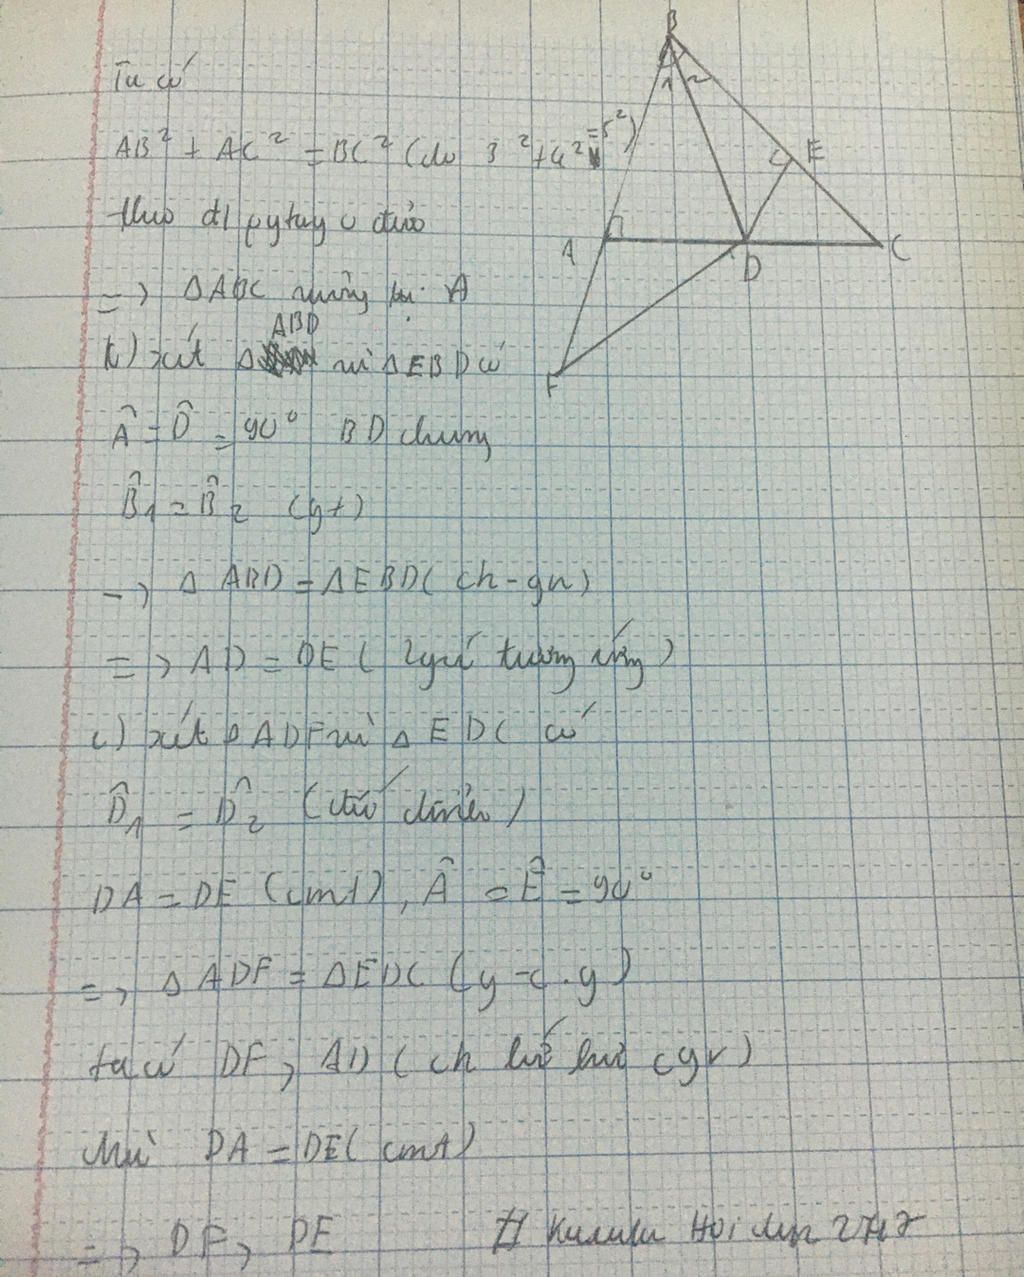 Ta có
AB² + AC² = BC² (do 3² + 4² = 5²)
theo đl pytago đảo
=> ΔABC vuông tại A
b) xét Δ ABD và Δ EBD có
Â = D̂ = 90° BD chung
B̂1 = B̂2 (gt)
-> Δ ABD = ΔEBD (ch-gn)
=> AD = DE (2 tương ứng)
c) xét Δ ADF và Δ EDC có
D̂1 = D̂2 (đối đỉnh)
DA = DE (cmt), Â = Ê = 90°
=> Δ ADF = ΔEDC (g-c.g)
ta có DF > AD (ch lớn hơn cgv)
Mà DA = DE (cmt)
=> DF > DE
B
1 2
E
A
D
C
F